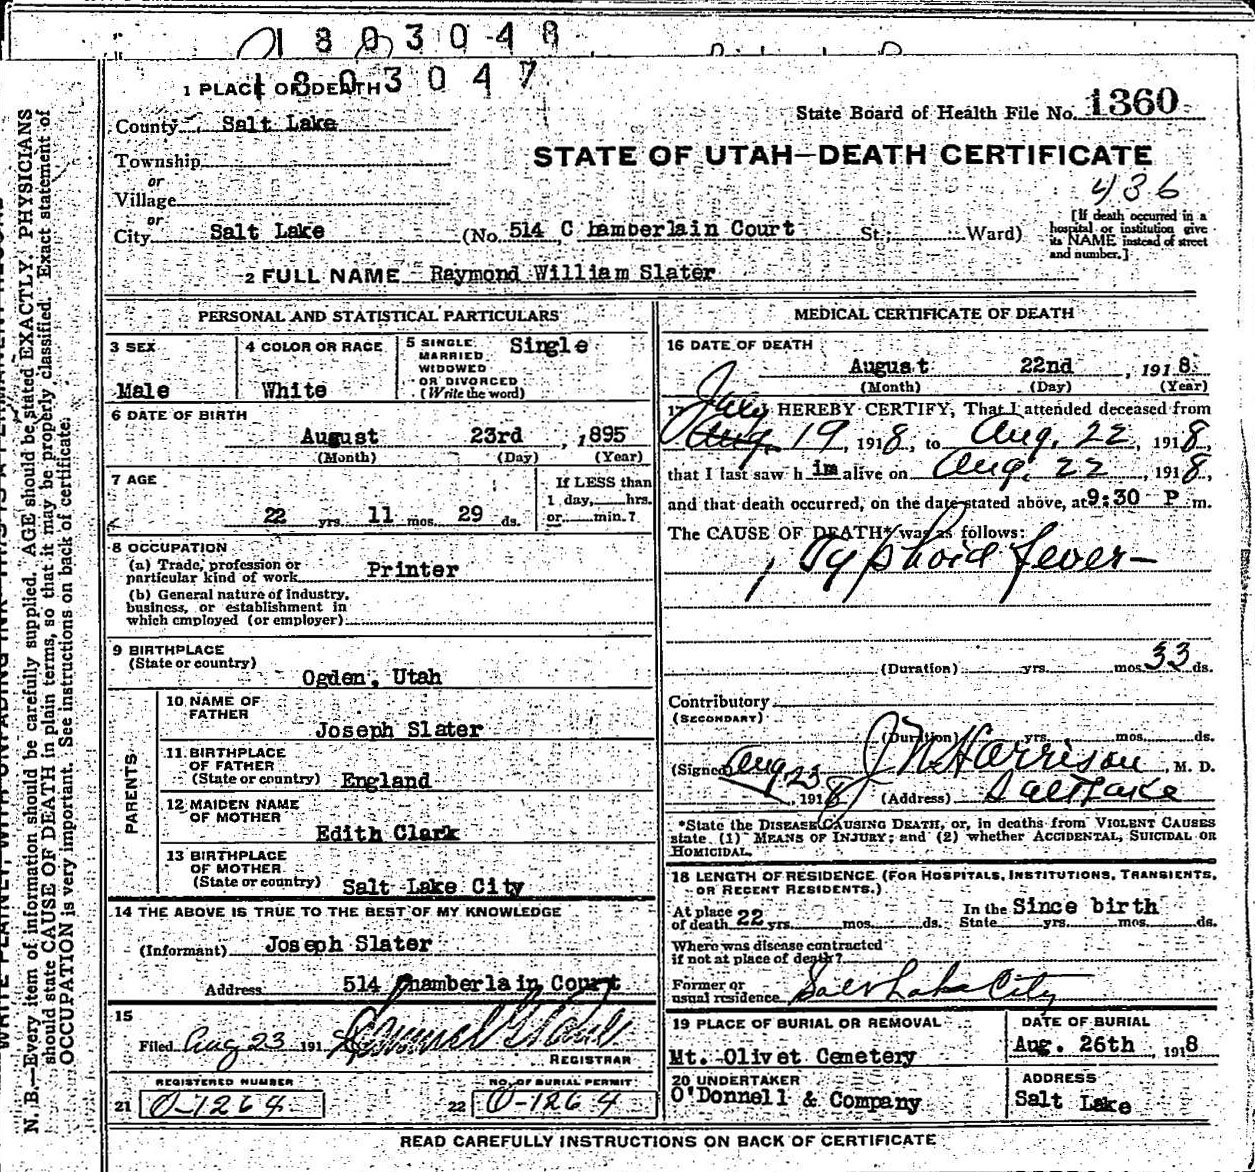 1803048
1803047
1 PLACE OF DEATH
State Board of Health File No. 1360
County Salt Lake
STATE OF UTAH—DEATH CERTIFICATE
Township
or
436
Village
or
City Salt Lake (No. 514 C hamberlain Court St.; Ward)
[If death occurred in a
hospital or institution give
its NAME instead of street
and number.]
2 FULL NAME Raymond William Slater
PERSONAL AND STATISTICAL PARTICULARS
3 SEX
Male
4 COLOR OR RACE
White
5 SINGLE
MARRIED
WIDOWED
OR DIVORCED
(Write the word)
Single
6 DATE OF BIRTH
August 23rd, 1895
(Month) (Day) (Year)
7 AGE
22 yrs. 11 mos. 29 ds.
If LESS than
1 day, hrs.
or min.?
8 OCCUPATION
(a) Trade, profession or
particular kind of work Printer
(b) General nature of industry,
business, or establishment in
which employed (or employer)
9 BIRTHPLACE
(State or country)
Ogden, Utah
PARENTS
10 NAME OF
FATHER
Joseph Slater
11 BIRTHPLACE
OF FATHER
(State or country) England
12 MAIDEN NAME
OF MOTHER
Edith Clark
13 BIRTHPLACE
OF MOTHER
(State or country) Salt Lake City
14 THE ABOVE IS TRUE TO THE BEST OF MY KNOWLEDGE
(Informant) Joseph Slater
Address 514 Chamberlain Court
15
Filed Aug 23 191
REGISTRAR
REGISTERED NUMBER
21 O-1264
NO. OF BURIAL PERMIT
22 O-1264
MEDICAL CERTIFICATE OF DEATH
16 DATE OF DEATH
August 22nd, 1918
(Month) (Day) (Year)
17 HEREBY CERTIFY, That I attended deceased from
July
Aug. 19, 1918, to Aug. 22, 1918,
that I last saw him alive on Aug. 22, 1918,
and that death occurred, on the date stated above, at 9:30 P m.
The CAUSE OF DEATH* was as follows:
Typhoid fever—
(Duration) yrs. mos. 33 ds.
Contributory
(SECONDARY)
(Duration) yrs. mos. ds.
(Signed) J N Harrison, M. D.
Aug 23, 1918 (Address) Salt Lake
*State the DISEASE CAUSING DEATH, or, in deaths from VIOLENT CAUSES
state (1) MEANS OF INJURY; and (2) whether ACCIDENTAL, SUICIDAL OR
HOMICIDAL.
18 LENGTH OF RESIDENCE (FOR HOSPITALS, INSTITUTIONS, TRANSIENTS,
OR RECENT RESIDENTS.)
At place
of death 22 yrs. mos. ds.
In the
State Since birth yrs. mos. ds.
Where was disease contracted
if not at place of death?
Former or
usual residence Salt Lake City
19 PLACE OF BURIAL OR REMOVAL
Mt. Olivet Cemetery
DATE OF BURIAL
Aug. 26th, 1918
20 UNDERTAKER
O'Donnell & Company
ADDRESS
Salt Lake
READ CAREFULLY INSTRUCTIONS ON BACK OF CERTIFICATE
N. B.—Every item of information should be carefully supplied. AGE should be stated EXACTLY. PHYSICIANS
should state CAUSE OF DEATH in plain terms, so that it may be properly classified. Exact statement of
OCCUPATION is very important. See instructions on back of certificate.